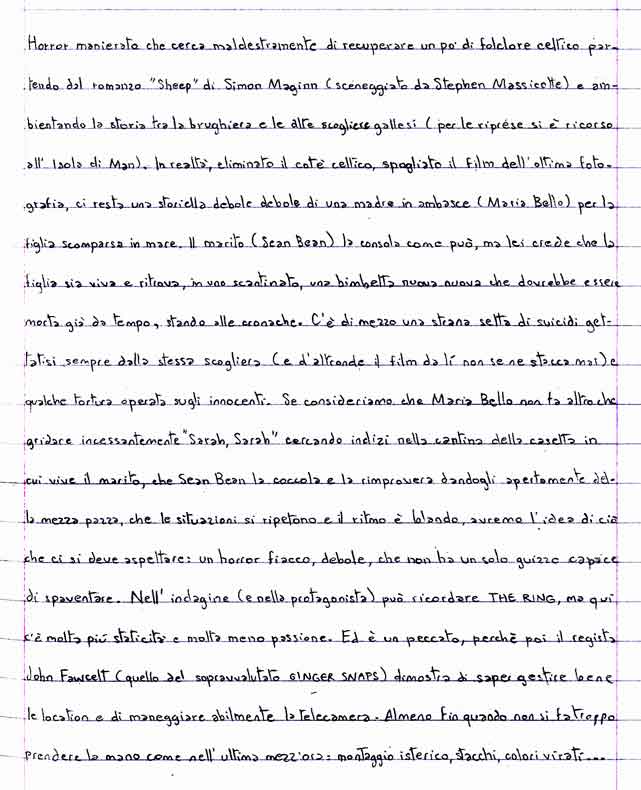 Horror manierato che cerca maldestramente di recuperare un po' di folclore celtico par-
tendo dal romanzo "Sheep" di Simon Maginn (sceneggiato da Stephen Massicotte) e am-
bientando la storia tra la brughiera e le alte scogliere gallesi (per le riprese si è ricorso
all'Isola di Man). In realtà, eliminato il coté celtico, spogliato il film dell'ottima foto-
grafia, ci resta una storiella debole debole di una madre in ambasce (Maria Bello) per la
figlia scomparsa in mare. Il marito (Sean Bean) la consola come può, ma lei crede che la
figlia sia viva e ritrova, in uno scantinato, una bimbetta nuova nuova che dovrebbe essere
morta già da tempo, stando alle cronache. C'è di mezzo una strana setta di suicidi get-
tatisi sempre dalla stessa scogliera (e d'altronde il film da lì non se ne stacca mai) e
qualche tortura operata sugli innocenti. Se consideriamo che Maria Bello non fa altro che
gridare incessantemente "Sarah, Sarah" cercando indizi nella cantina della casetta in
cui vive il marito, che Sean Bean la coccola e la rimprovera dandogli apertamente del-
la mezza pazza, che le situazioni si ripetono e il ritmo è blando, avremo l'idea di ciò
che ci si deve aspettare: un horror fiacco, debole, che non ha un solo guizzo capace
di spaventare. Nell'indagine (e nella protagonista) può ricordare THE RING, ma qui
c'è molta più staticità e molta meno passione. Ed è un peccato, perchè poi il regista
John Fawcett (quello del sopravvalutato GINGER SNAPS) dimostra di saper gestire bene
le location e di maneggiare abilmente la telecamera. Almeno fin quando non si fa troppo
prendere la mano come nell'ultima mezz'ora: montaggio isterico, stacchi, colori virati...